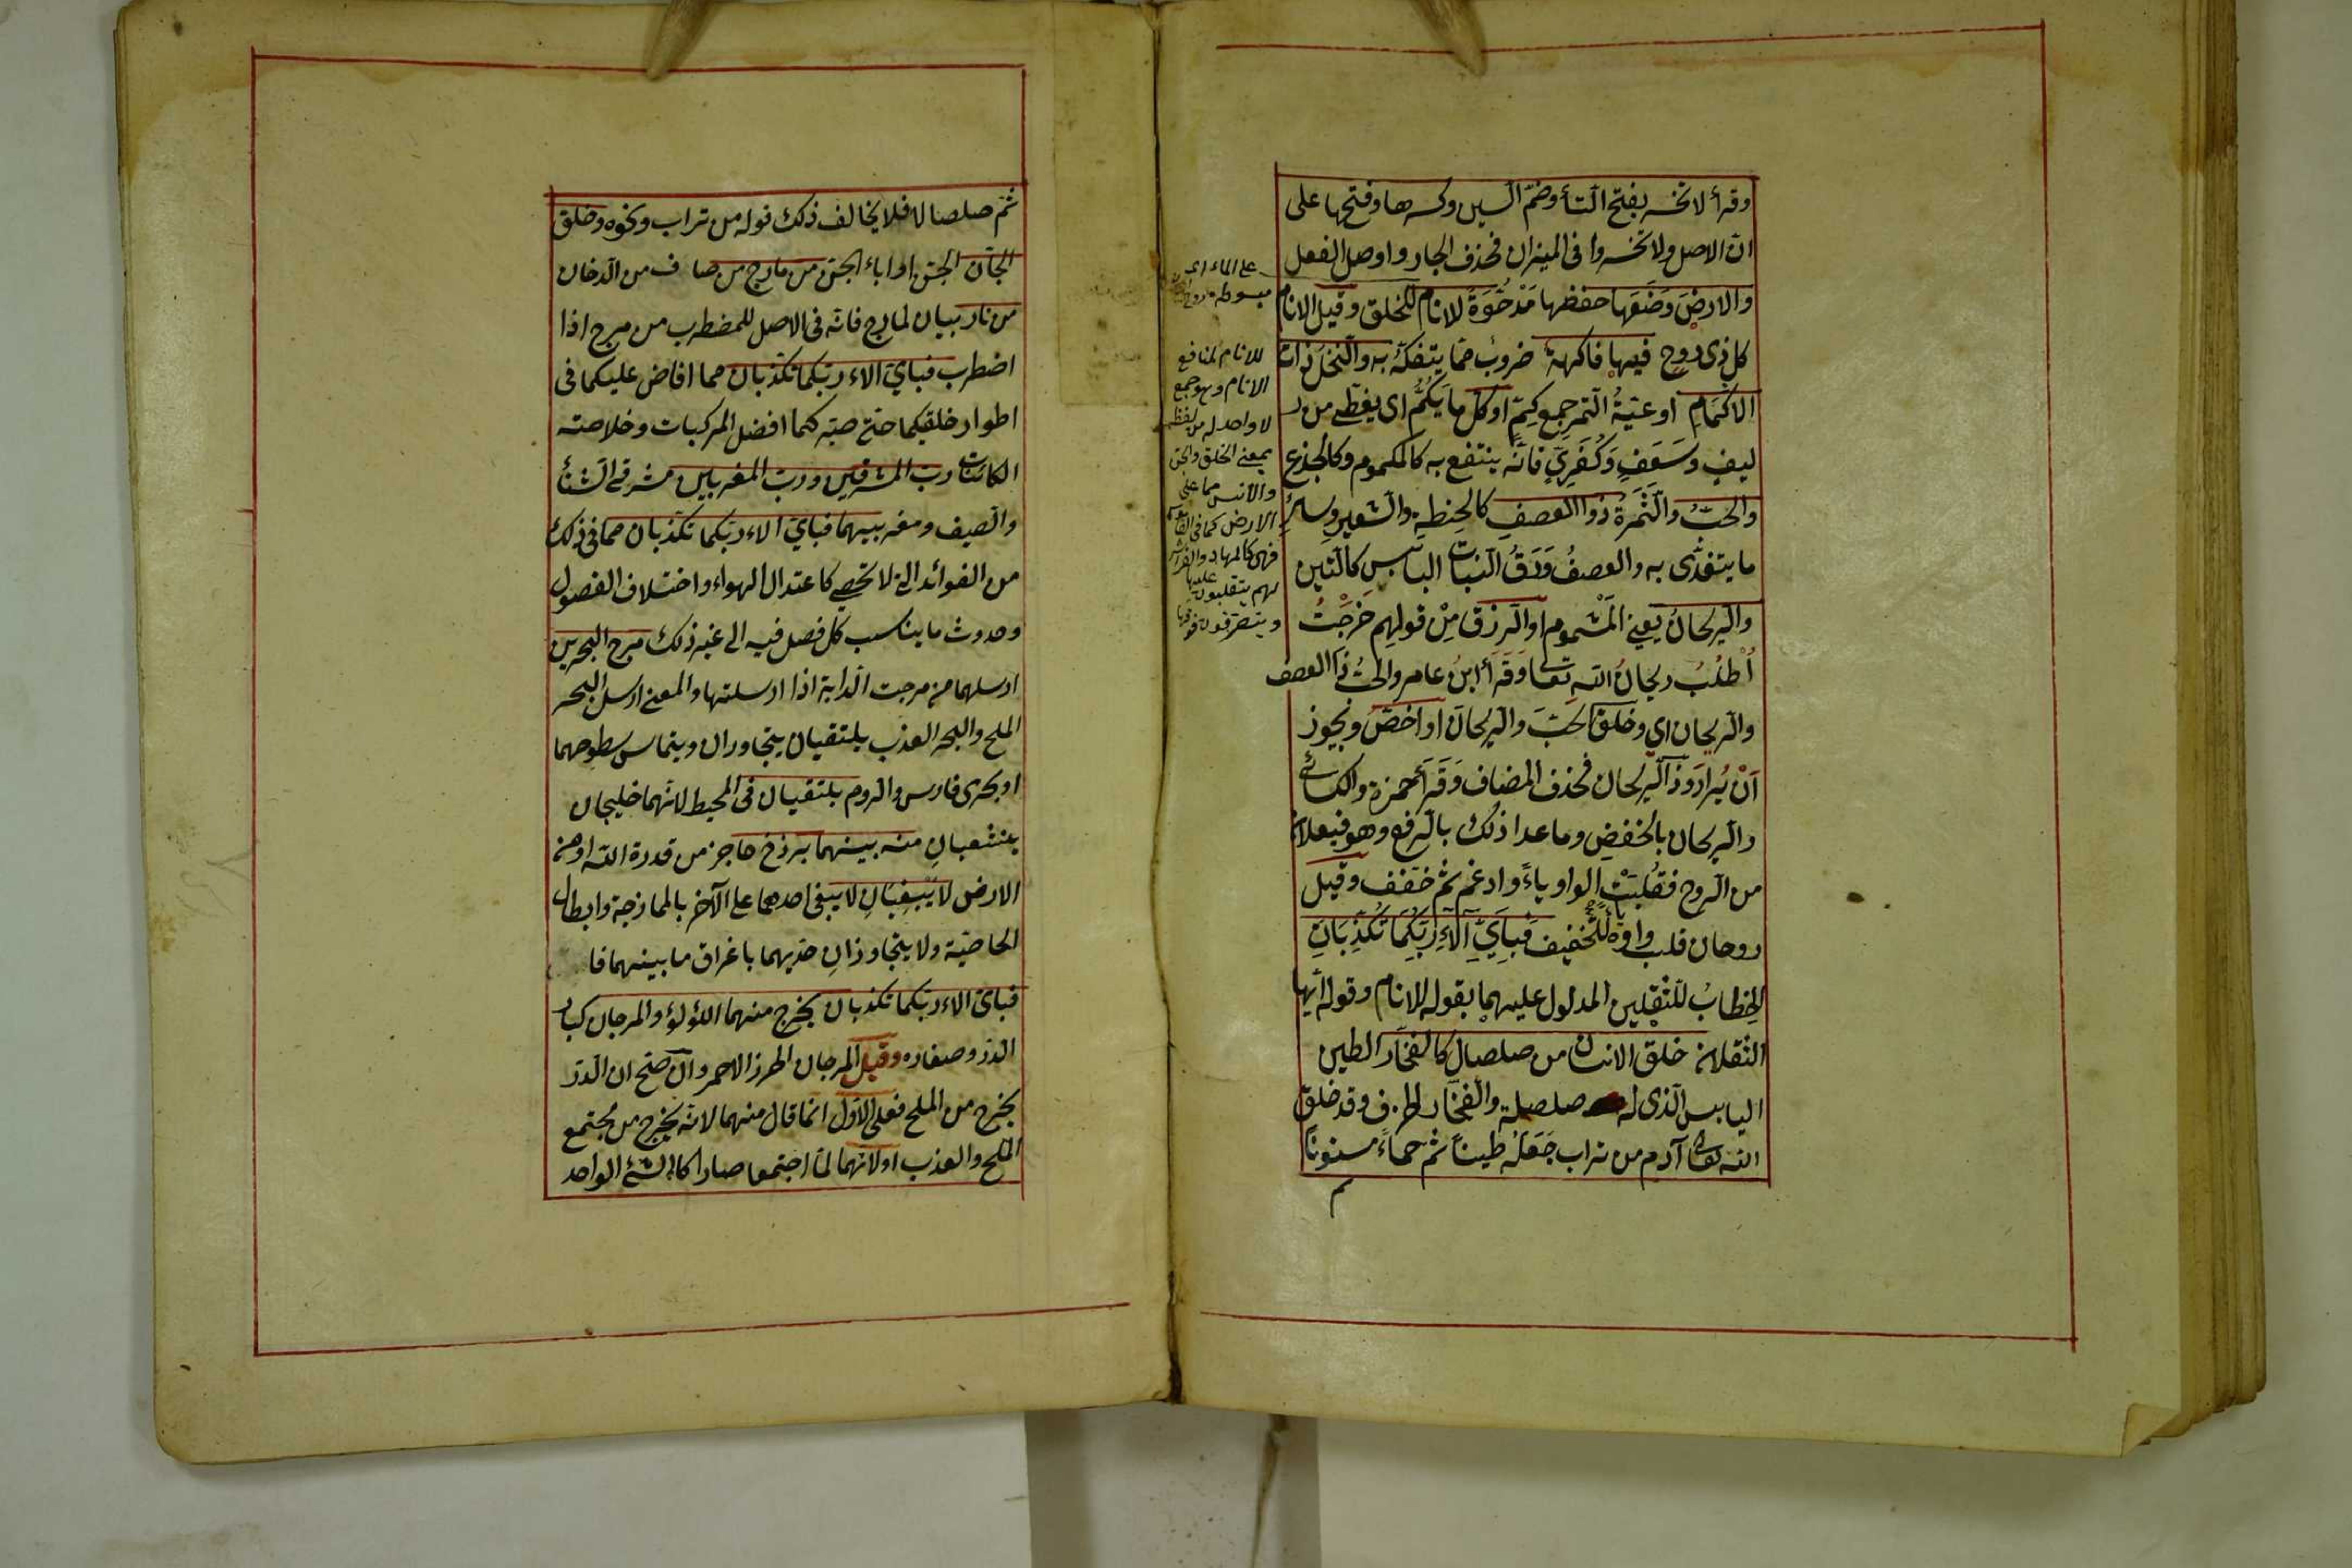 وقرأ لا تخسر بفتح التاء وضمّ السين وكسرها وفتحها على
انّ الاصل ولا تخسروا فى الميزان فحذف الجار واوصل الفعل
والارضَ وَضَعَها خفضها مَدْحُوّةً للانام للخلق وقيل الانام
كل ذى روح فيها فاكهة ضروبٌ ممّا يتفكّهُ به والنخلُ ذات
الاكمَامِ اوعيةُ التمر جمع كِمّ او كلّ ما يَكُمُّ اى يغطّى من
ليفٍ وسَعَفٍ وَكُفَرّيٍ فانّه ينتفع به كالمكموم وكالجذع
والحبُّ والثمرة ذو العصفِ كالحِنطةِ والشعيرِ وسائرِ
ما يتغذّى به والعصفُ وَرَقُ النبات اليابس كالتين
والريحانُ يعنى المَشْموم او الرزق مِنْ قولِهِم خَرَجْتُ
اُطْلُبُ ريحانُ الله تعا وَقَرَأ ابنُ عامر والحبَّ ذا العصف
والريحان اى وخلق الحَبّ والريحانَ او اخصّ ويجوز
اَنْ يُرادَ وذا الريحان فحذف المضاف وَقَرَأ حمزة والكسائى
والريحان بالخفض وما عدا ذلك بالرفع وهو فيعلان
من الروح فقُلبَتْ الواو ياءً وادغم ثم خفف وقيل
روحان قلب واوه ياءً للتخفيف فَبِاَىِّ آلآءِ رَبِّكُمَا تُكَذِّبَانِ
الخِطابُ للثقلين المدلول عليهما بقوله للانام وقوله ايها
الثقلان خلق الانسان من صلصال كالفخّار الطين
اليابس الذى له صلصلة والفخّار الخزف وقد خلق
الله تعالى آدم من تراب جَعَلَهُ طيناً ثم حمأءً مسنوناً
على الماء اى
مبسوطة
للانام لمنافع
الانام وهو جمع
لا واحد له من لفظه
بمعنى الخلق والجن
والانس مما على
الارض كما فى
فهى كالمهاد والفراش
لهم يتقلبون عليها
ويتصرفون فوقها
ثم
ثمّ صلصالا فلا يخالف ذلك قوله من تراب ونحوه وخلق
الجّان الجنّ او اباء الجنّ من مارج من صاف من الدخان
من نار بيان لمارج فانّه فى الاصل للمضطرب من مرج اذا
اضطرب فبأىّ الاء ربّكما تكذّبان مما افاض عليكما فى
اطوار خلقكما حتى صيّركما افضل المركبات وخلاصة
الكائنات ربّ المشرقين وربّ المغربين مشرقى الشتاء
والصيف ومغربيهما فبأىّ الاء ربّكما تكذّبان مما فى ذلك
من الفوائد التى لا تحصى كاعتدال الهواء واختلاف الفصول
وحدوث ما يناسب كل فصل فيه الى غير ذلك مرج البحرين
ارسلهما من مرجت الدابة اذا ارسلتها والمعنى ارسل البحر
الملح والبحر العذب يلتقيان يتجاوران ويتماس سطوحهما
او بحرى فارس والروم يلتقيان فى المحيط لانّهما خليجان
ينشعبان منه بينهما برزخ حاجز من قدرة الله او من
الارض لا يَبغِيَانِ لا يبغى احدهما على الآخر بالممازجة وابطال
الخاصّية ولا يتجاوزانِ حدّيهما باغراق ما بينهما
فبأىّ الاء ربّكما تكذبان يخرج منهما اللؤلؤ والمرجان كبار
الدرّ وصغاره وقيل المرجان الخرز الاحمر وان صحّ ان الدرّ
يخرج من الملح فعلى الاوّل انّما قال منهما لانّه يخرج من مجتمع
الملح والعذب او لانّهما لمّا اجتمعا صارا كالشئ الواحد